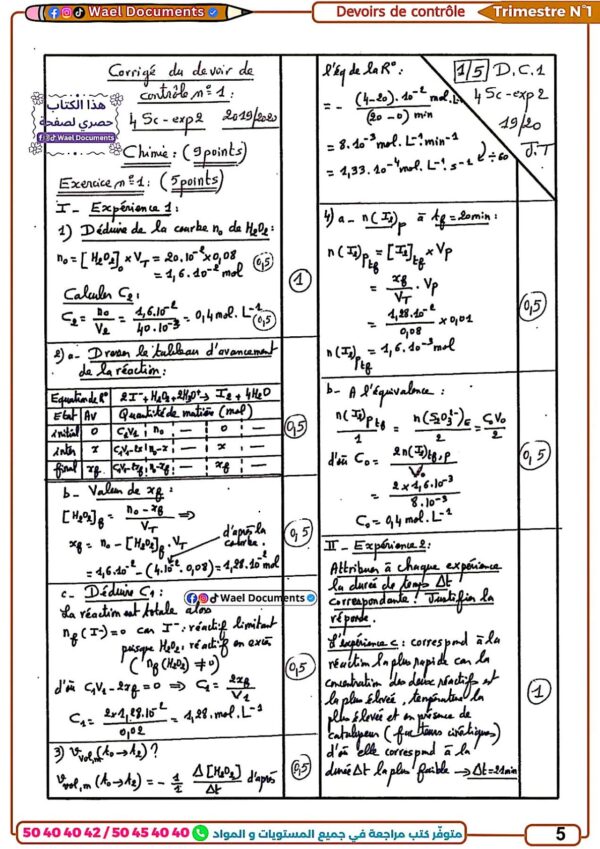 Wael Documents
Devoirs de contrôle
Trimestre N°1
Corrigé du devoir de
contrôle n°1 :
4 Sc-exp2 2019/2020
هذا الكتاب
حصري لصفحة
Wael Documents
Chimie : (9 points)
Exercice n°1 : (5 points)
I- Expérience 1 :
1) Déduire de la courbe n₀ de H₂O₂ :
n₀ = [H₂O₂]₀ × V_T = 20.10⁻² × 0,08
= 1,6.10⁻² mol
0,5
Calculer C₂ :
C₂ = n₀/V₂ = 1,6.10⁻²/40.10⁻³ = 0,4 mol.L⁻¹
0,5
1
2) a- Dresser le tableau d'avancement
de la réaction :
Equation de R° 2I⁻ + H₂O₂ + 2H₃O⁺ → I₂ + 4H₂O
Etat Av Quantité de matière (mol)
initial 0 C₁V₁ n₀ — 0 —
inter x C₁V₁-2x n₀-x — x —
final xf C₁V₁-2xf n₀-xf — xf —
0,5
b- Valeur de xf :
[H₂O₂]f = (n₀ - xf)/V_T ⇒
xf = n₀ - [H₂O₂]f . V_T
d'après la
courbe.
= 1,6.10⁻² - (4.10⁻² . 0,08) = 1,28.10⁻² mol
0,5
c- Déduire C₁ :
La réaction est totale alors
nf(I⁻) = 0 car I⁻ : réactif limitant
puisque H₂O₂ : réactif en excès
(nf(H₂O₂) ≠ 0)
d'où C₁V₁ - 2xf = 0 ⇒ C₁ = 2xf/V₁
C₁ = 2×1,28.10⁻²/0,02 = 1,28 mol.L⁻¹
0,5
3) V vol,m (t₀→t₂) ?
V vol,m (t₀→t₂) = - 1/1 Δ[H₂O₂]/Δt d'après
0,5
l'éq de la R° :
= - (4-20).10⁻² mol.L⁻¹/(20-0) min
= 8.10⁻³ mol.L⁻¹ min⁻¹
= 1,33.10⁻⁴ mol.L⁻¹.s⁻¹ ÷60
1/5 D.C.1
4 Sc-exp2
19/20
J.T
4) a- n(I₂)p à tf = 20min :
n(I₂)p tf = [I₂]tf × Vp
= xf/V_T . Vp
= 1,28.10⁻²/0,08 × 0,01
n(I₂)p tf = 1,6.10⁻³ mol
0,5
b- A l'équivalence :
n(I₂)p tf/1 = n(S₂O₃²⁻)E/2 = C₀V₀/2
d'où C₀ = 2n(I₂)tf,p/V₀
= 2×1,6.10⁻³/8.10⁻³
C₀ = 0,4 mol.L⁻¹
0,5
II- Expérience 2 :
Attribuer à chaque expérience
la durée de temps Δt
correspondante. Justifier la
réponse.
L'expérience c : correspond à la
réaction la plus rapide car la
concentration des deux réactifs est
la plus élevée, température la
plus élevée et en présence de
catalyseur (facteurs cinétiques)
d'où elle correspond à la
durée Δt la plus faible → Δt = 21min
1
Wael Documents
50 40 40 42 / 50 45 40 40 متوفّر كتب مراجعة في جميع المستويات و المواد
5